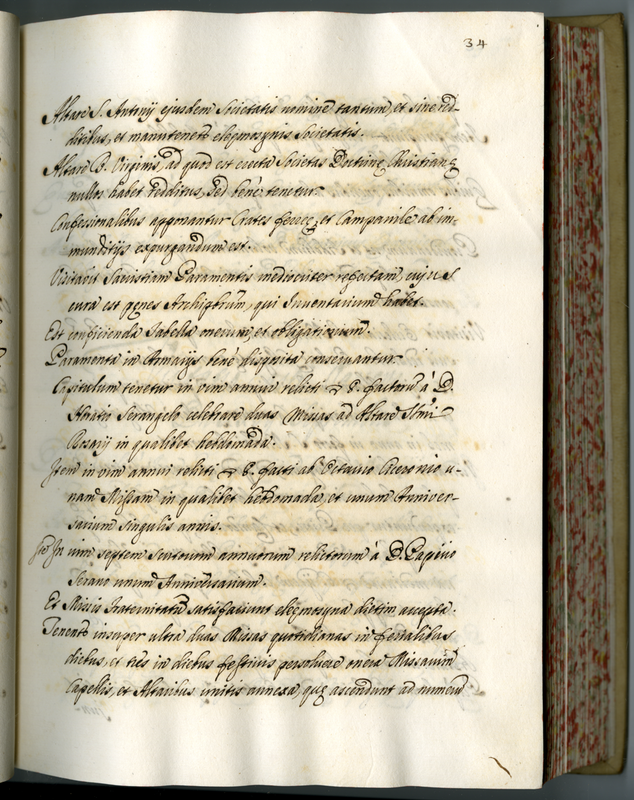 34
Altare S. Antonij ejusdem Societatis nomine tantum, et sine red-
ditibus, et manutenet.r eleemosynis Societatis.
Altare B. Virginis, ad quod est erecta Societas Doctrinę Christianę
nullos habet redditus, sed bene tenetur
Confessionalibus apponantur Crates ferreę, et Campanile ab im-
munditijs expurgandum est.
Visitavit Sacristiam Paramentis mediocriter refectam, cujus
cura est penes Archipbrum, qui Inventarium habet.
Est conficienda Tabella onerum, et obligationum.
Paramenta in Armarijs bene disposita conservantur
Capitulum tenetur in vim annui relicti facturi à D.
Horatio Serangelo celebrare duas Missas ad Altare Smi
Rosarij in qualibet hebdomada.
Item in vim annui relicti facti ab Octavio Cicconio u-
nam Missam in qualibet hebdomada, et unum Anniver-
sarium singulis annis.
In vim septem Scutorum annuorum relictorum à D. Papirio
Serano unum Anniversarium.
Et Missis Fraternitatum satisfaciunt eleemosyna dietim accepta.
Tenentr insuper ultra duas Missas quotidianas in ferialibus
diebus, et tres in diebus festivis persolvere onera Missarum
Capellis, et Altaribus unitis annexa, quę ascendunt ad numerum